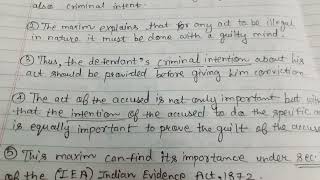 also criminal intent.
② The maxim explains that for any act to be illegal
in nature it must be done with a guilty mind.
③ Thus, the defendant's criminal intention about his
act should be provided before giving him conviction
④ The act of the accused is not only important but
that the intention of accused to do the specific a
is equally important to prove the guilt of the accuse
⑤ This maxim can find its importance under sec.
of the (IEA) Indian Evidence Act, 1872.